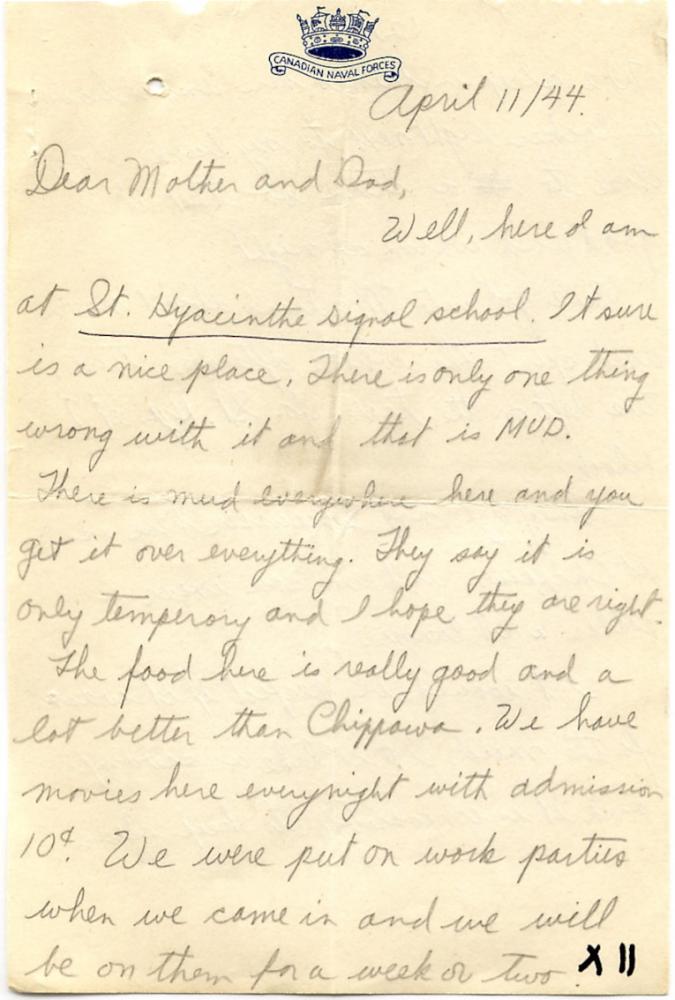 CANADIAN NAVAL FORCES
April 11/44.
Dear Mother and Dad,
Well, here I am
at St. Hyacinthe signal school. It sure
is a nice place. There is only one thing
wrong with it and that is MUD.
There is mud everywhere here and you
get it over everything. They say it is
only temperory and I hope they are right.
The food here is really good and a
lot better than Chippawa. We have
movies here everynight with admission
10¢. We were put on work parties
when we came in and we will
be on them for a week or two.
X II